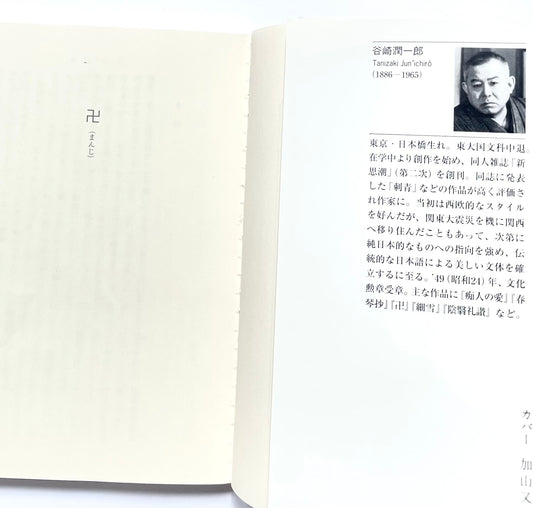 卍
(まんじ)
谷崎潤一郎
Tanizaki Jun'ichirô
(1886－1965)
東京・日本橋生れ。東大国文科中退。
在学中より創作を始め、同人雑誌「新
思潮」(第二次)を創刊。同誌に発表
した「刺青」などの作品が高く評価さ
れ作家に。当初は西欧的なスタイル
を好んだが、関東大震災を機に関西
へ移り住んだこともあって、次第に
純日本的なものへの指向を強め、伝
統的な日本語による美しい文体を確
立するに至る。'49(昭和24)年、文化
勲章受章。主な作品に『痴人の愛』『春
琴抄』『卍』『細雪』『陰翳礼讃』など。
カバー 加山又